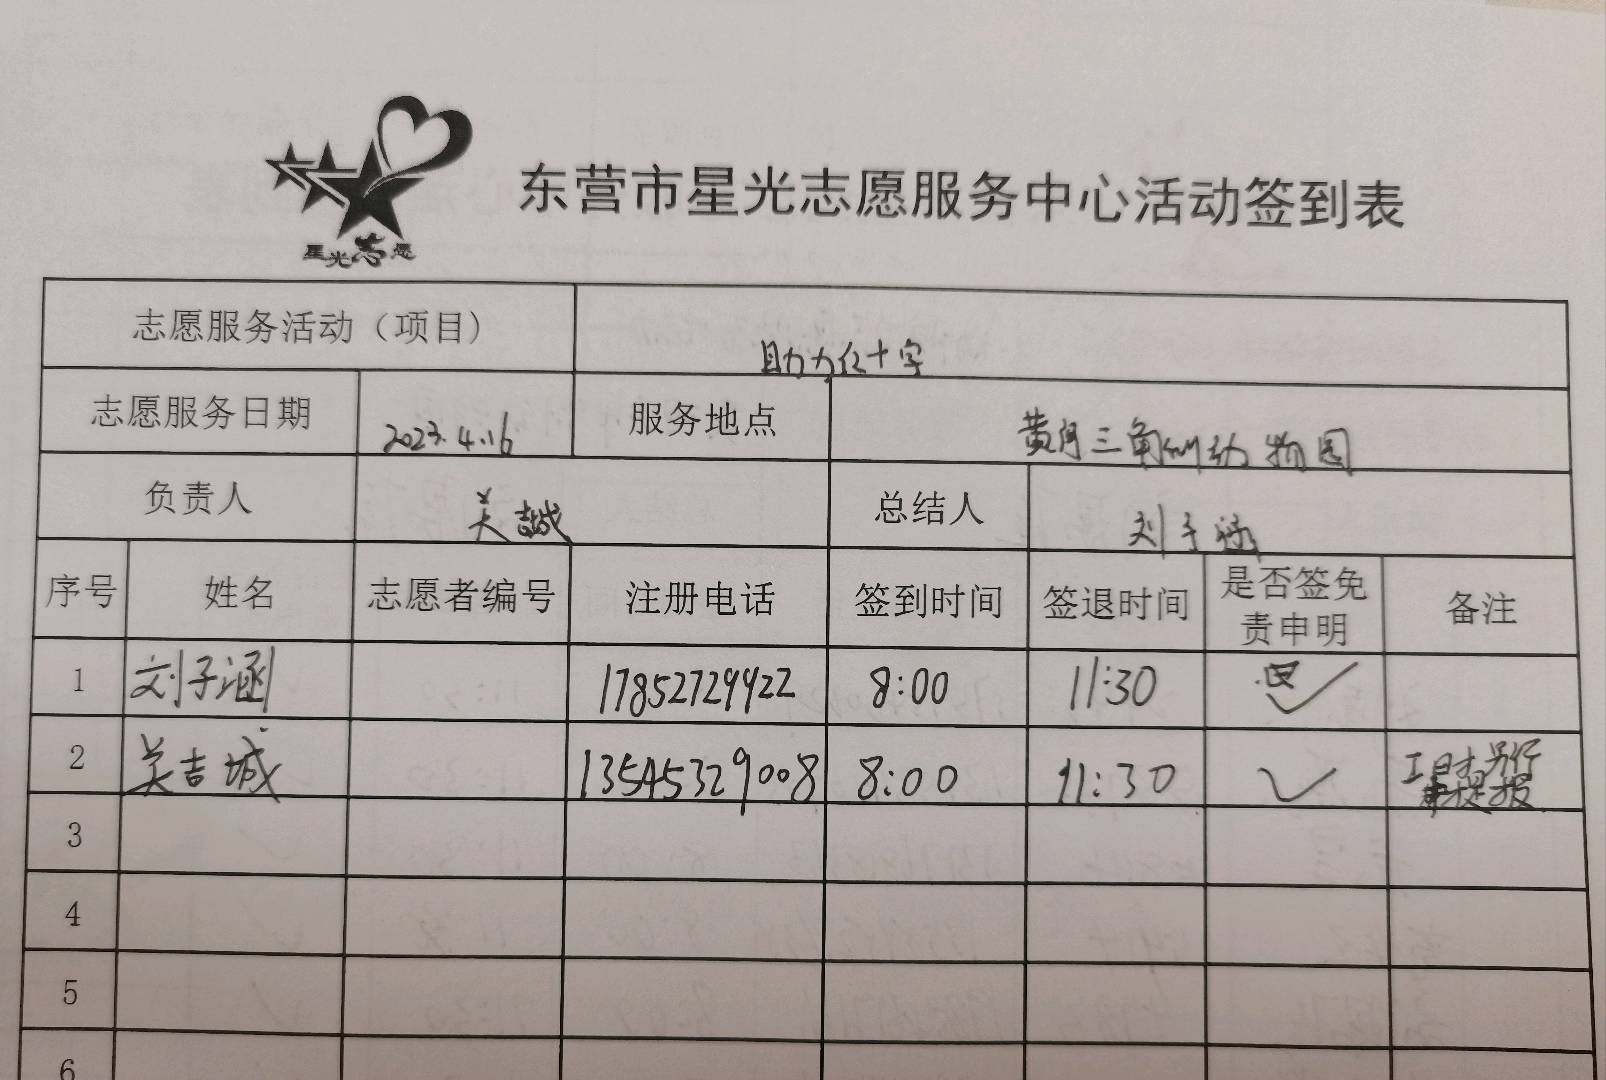 星光志愿
东营市星光志愿服务中心活动签到表
志愿服务活动（项目） 助力红十字
志愿服务日期 2023.4.16 服务地点 黄河三角洲动物园
负责人 关吉城 总结人 刘子涵
序号 姓名 志愿者编号 注册电话 签到时间 签退时间 是否签免责申明 备注
1 刘子涵 17852729422 8:00 11:30 ✓
2 关吉城 13545329008 8:00 11:30 ✓ 另行 提报
3
4
5
6